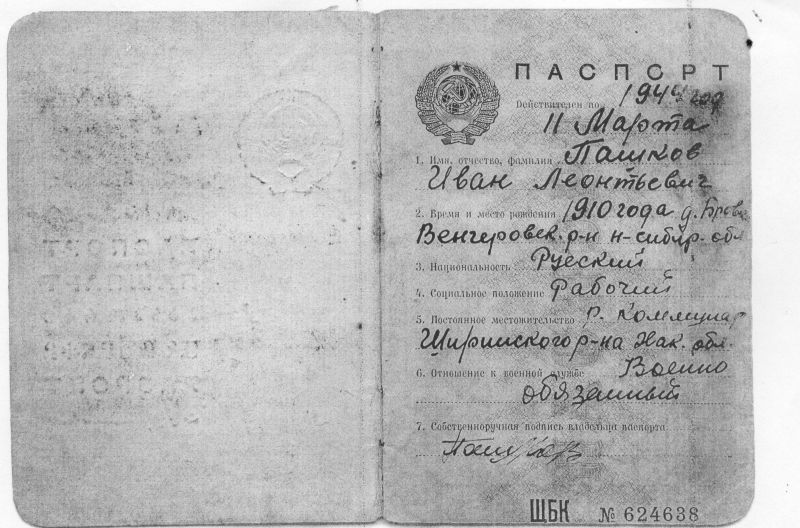 ПАСПОРТ
Действителен по 194 год
11 Марта
1. Имя, отчество, фамилия Пашков
Иван Леонтьевич
2. Время и место рождения 1910 года д.
Венгеровск. р-н Н-сибир. обл
3. Национальность Русский
4. Социальное положение Рабочий
5. Постоянное местожительство р. Коммунар
Ширинского р-на Хак. обл.
6. Отношение к военной службе Военно
обязанный
7. Собственноручная подпись владельца паспорта
Пашков
ЩБК № 624638